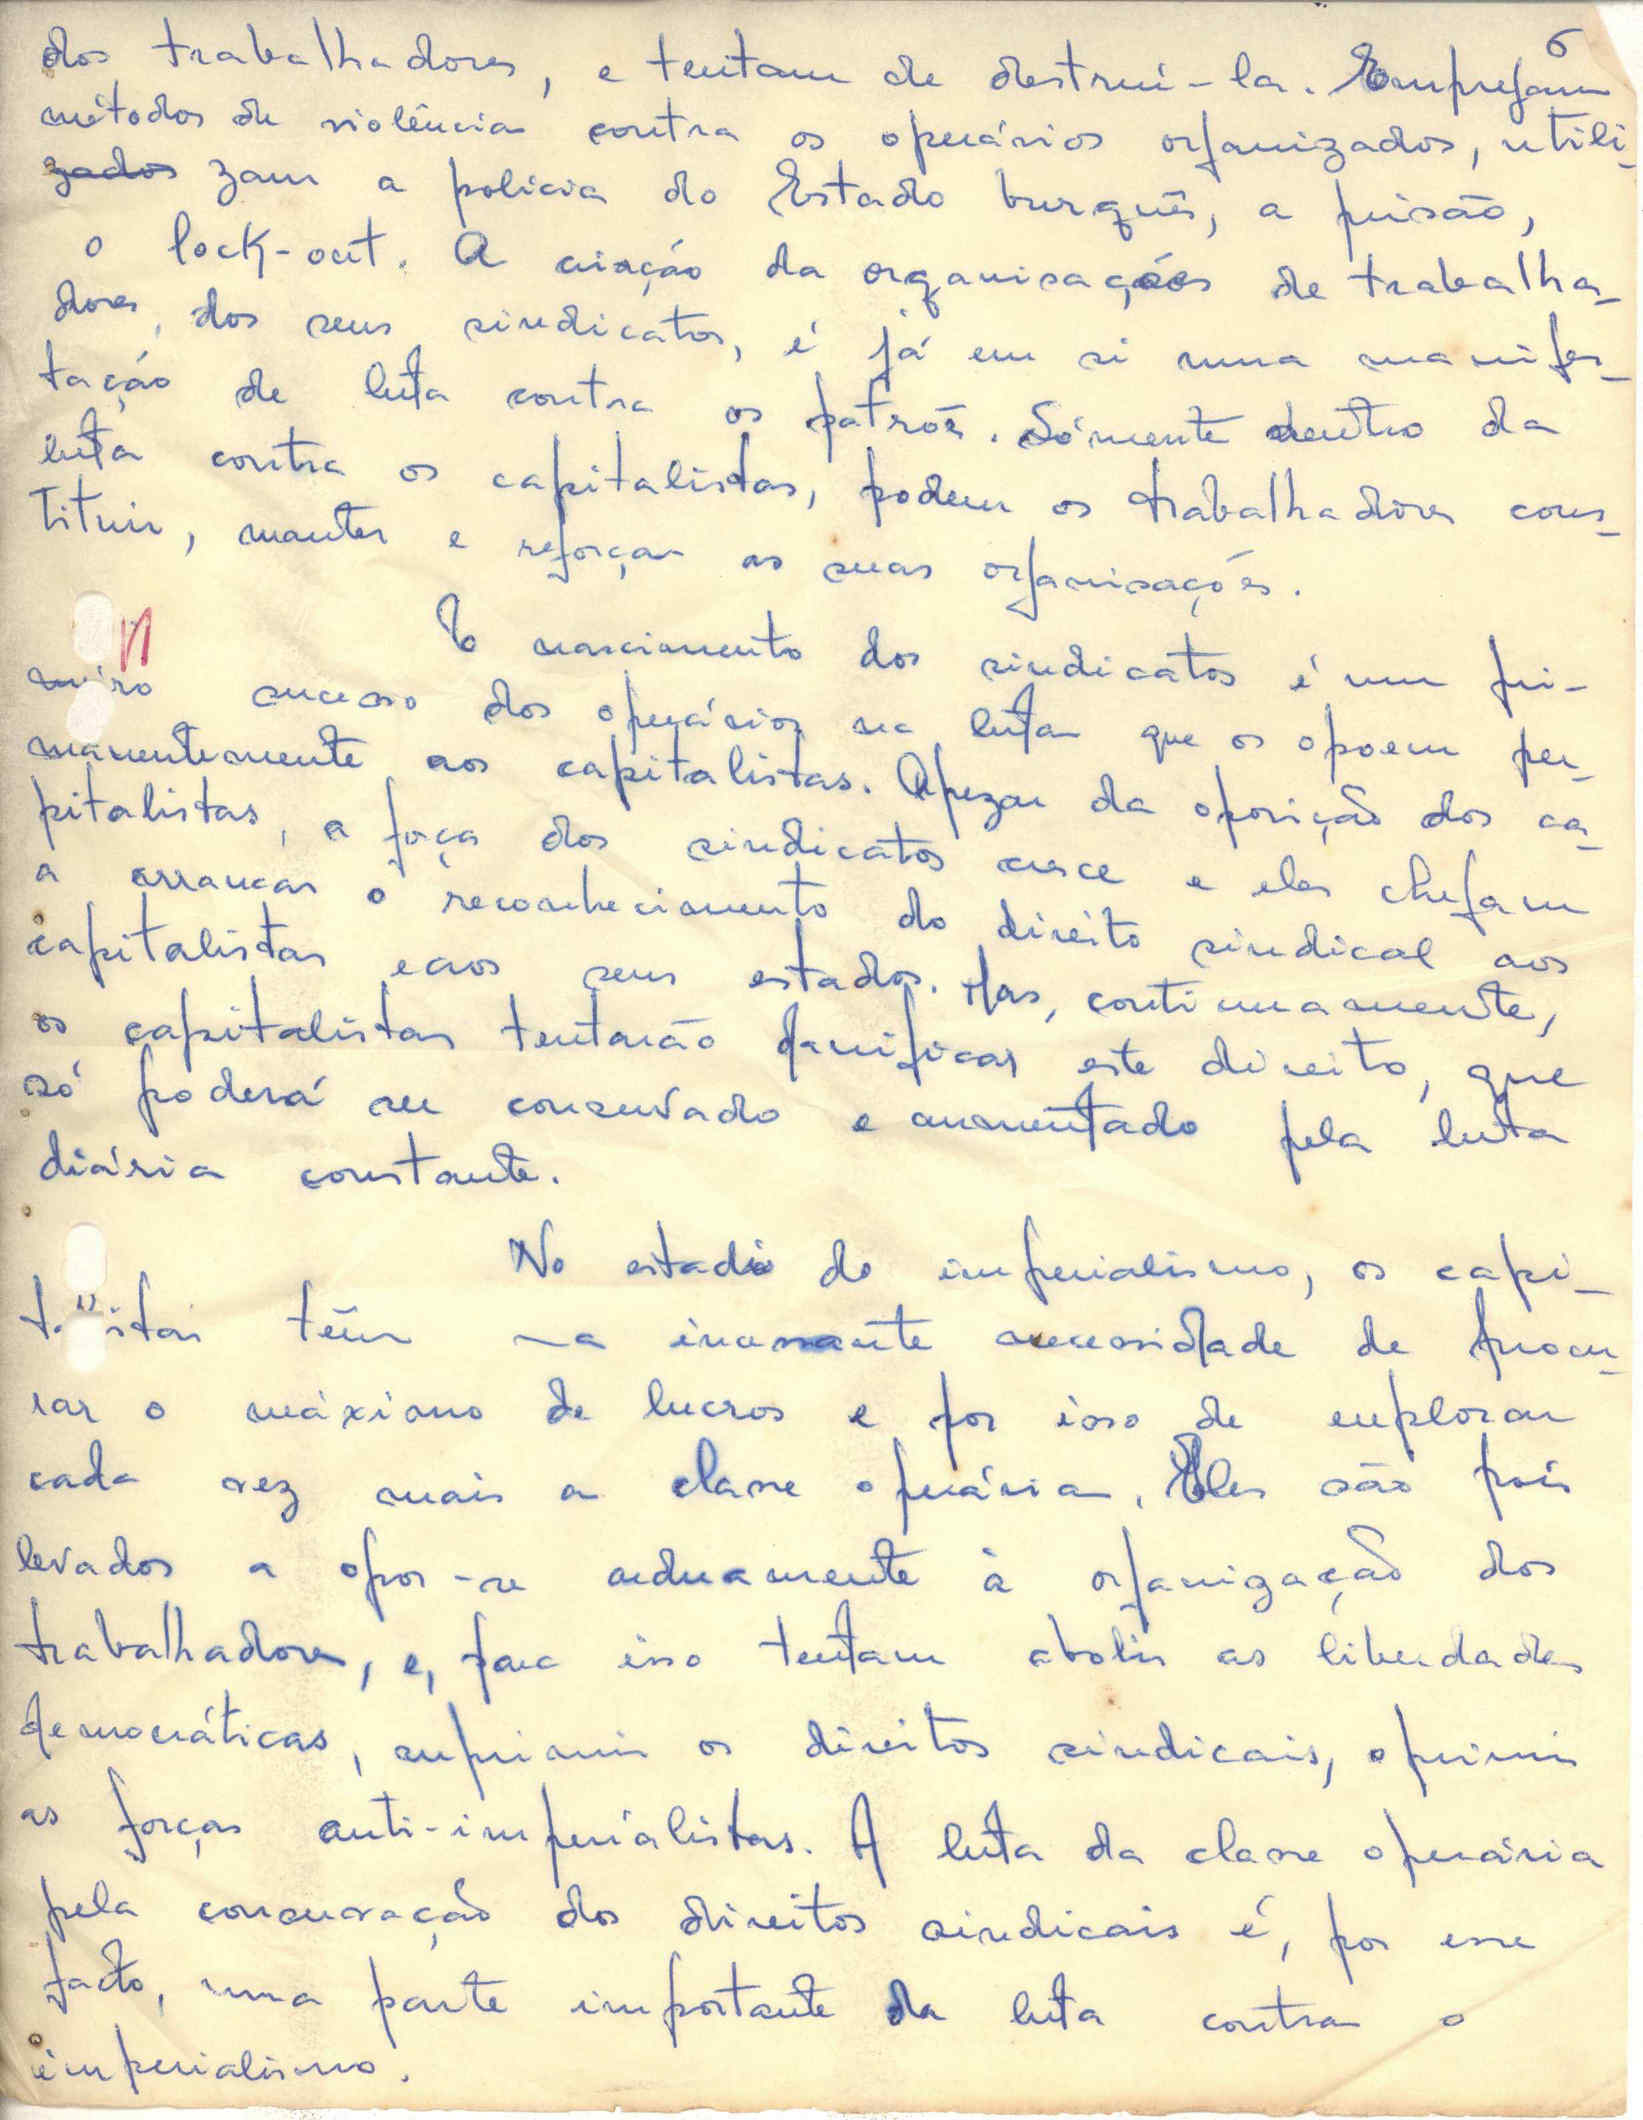 6
dos trabalhadores, e tentam de destrui-la. Empregam
métodos de violência contra os operários organizados, utili-
zados zam a policia do Estado burguês, a prisão,
o lock-out. A criação da organisações de trabalha-
dores, dos seus sindicatos, é já em si uma manifes-
tação de luta contra os patrões. Sómente dentro da
luta contra os capitalistas, podem os trabalhadores cons-
tituir, manter e reforçar as suas organisações.
O nascimento dos sindicatos é um pri-
meiro sucesso dos operários na luta que os opoem per-
manentemente aos capitalistas. Apezar da oposição dos ca-
pitalistas, a força dos sindicatos cresce e eles chegam
a arrancar o reconhecimento do direito sindical aos
capitalistas e aos seus estados. Mas, continuamente,
os capitalistas tentarão danificar este direito, que
só poderá ser conservado e aumentado pela luta
diária constante.
No estadio do imperialismo, os capi-
talistas têm na incessante necessidade de procu-
rar o máximo de lucros e por isso de explorar
cada vez mais a classe operária. Eles são pois
levados a opor-se arduamente à organização dos
trabalhadores, e, para isso tentam abolir as liberdades
democráticas, suprimir os direitos sindicais, oprimir
as forças anti-imperialistas. A luta da classe operária
pela conservação dos direitos sindicais é, por esse
facto, uma parte importante da luta contra o
imperialismo.